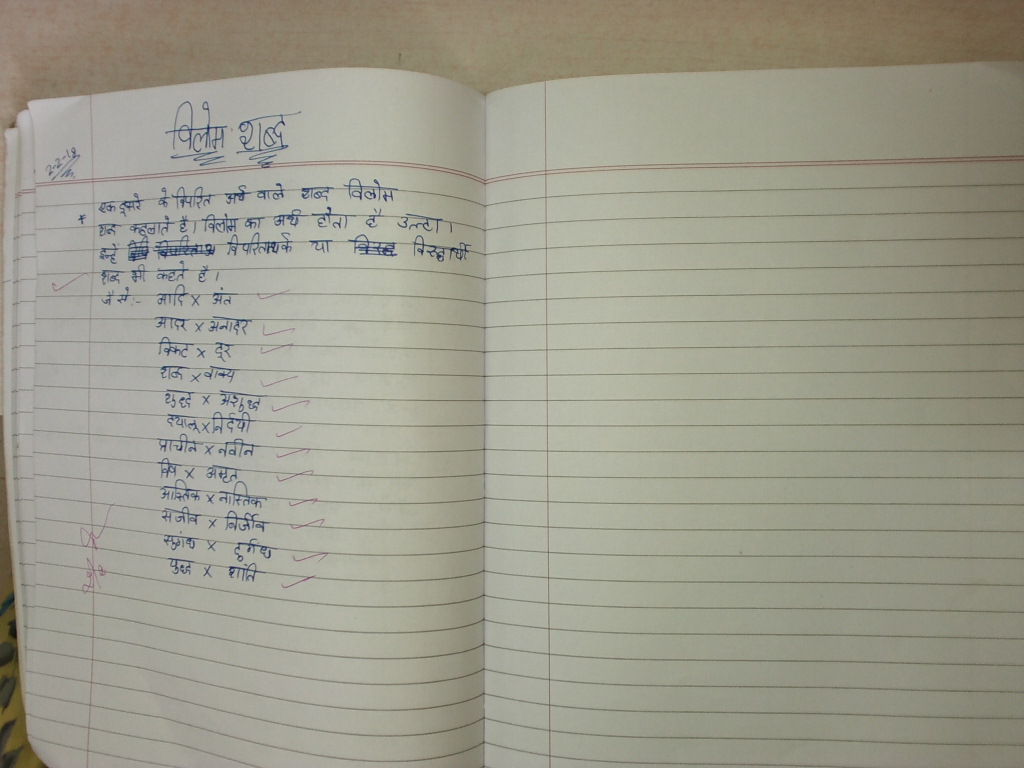 विलोम शब्द
2-2-19
* एक दूसरे के विपरित अर्थ वाले शब्द विलोम
शब्द कहलाते है। विलोम का अर्थ होता है उल्टा।
इन्हे विपरितार्थक या विरुद्धार्थी
शब्द भी कहते है।
जैसे:- आदि x अंत
आदर x अनादर
निकट x दूर
शब्द x वाक्य
शुद्ध x अशुद्ध
दयालू x निर्दयी
प्राचीन x नवीन
विष x अमृत
आस्तिक x नास्तिक
सजीव x निर्जीव
सुगंध x दुर्गंध
युद्ध x शांति